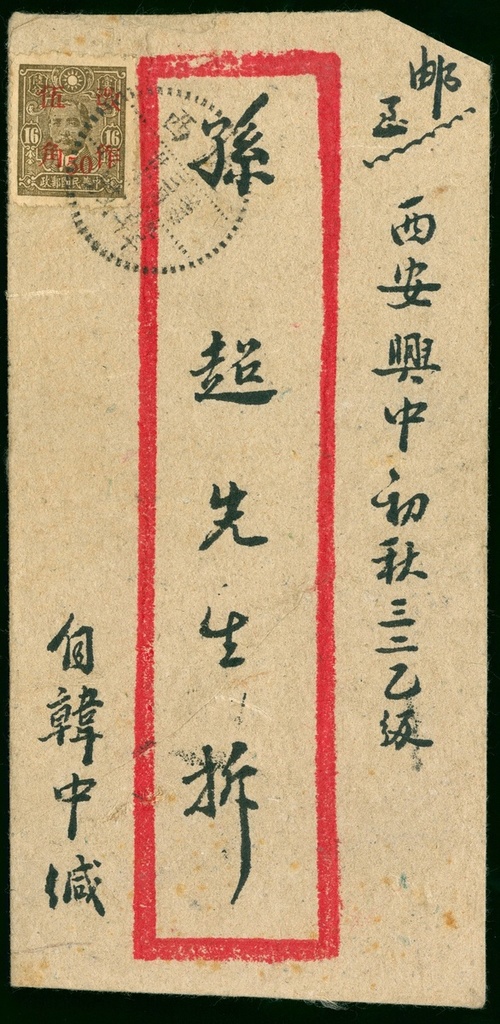 邮
西安興中初秋三二乙級
孫超先生拆
自韓中緘
改作
伍角
50
16
16
中華民國郵政